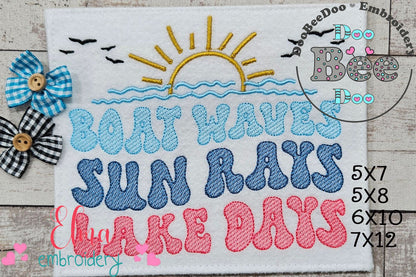 DooBeeDoo • Embroidery
Doo
Bee
Doo
BOAT WAVES
SUN RAYS
LAKE DAYS
5X7
5X8
6X10
7X12
Elva
embroidery